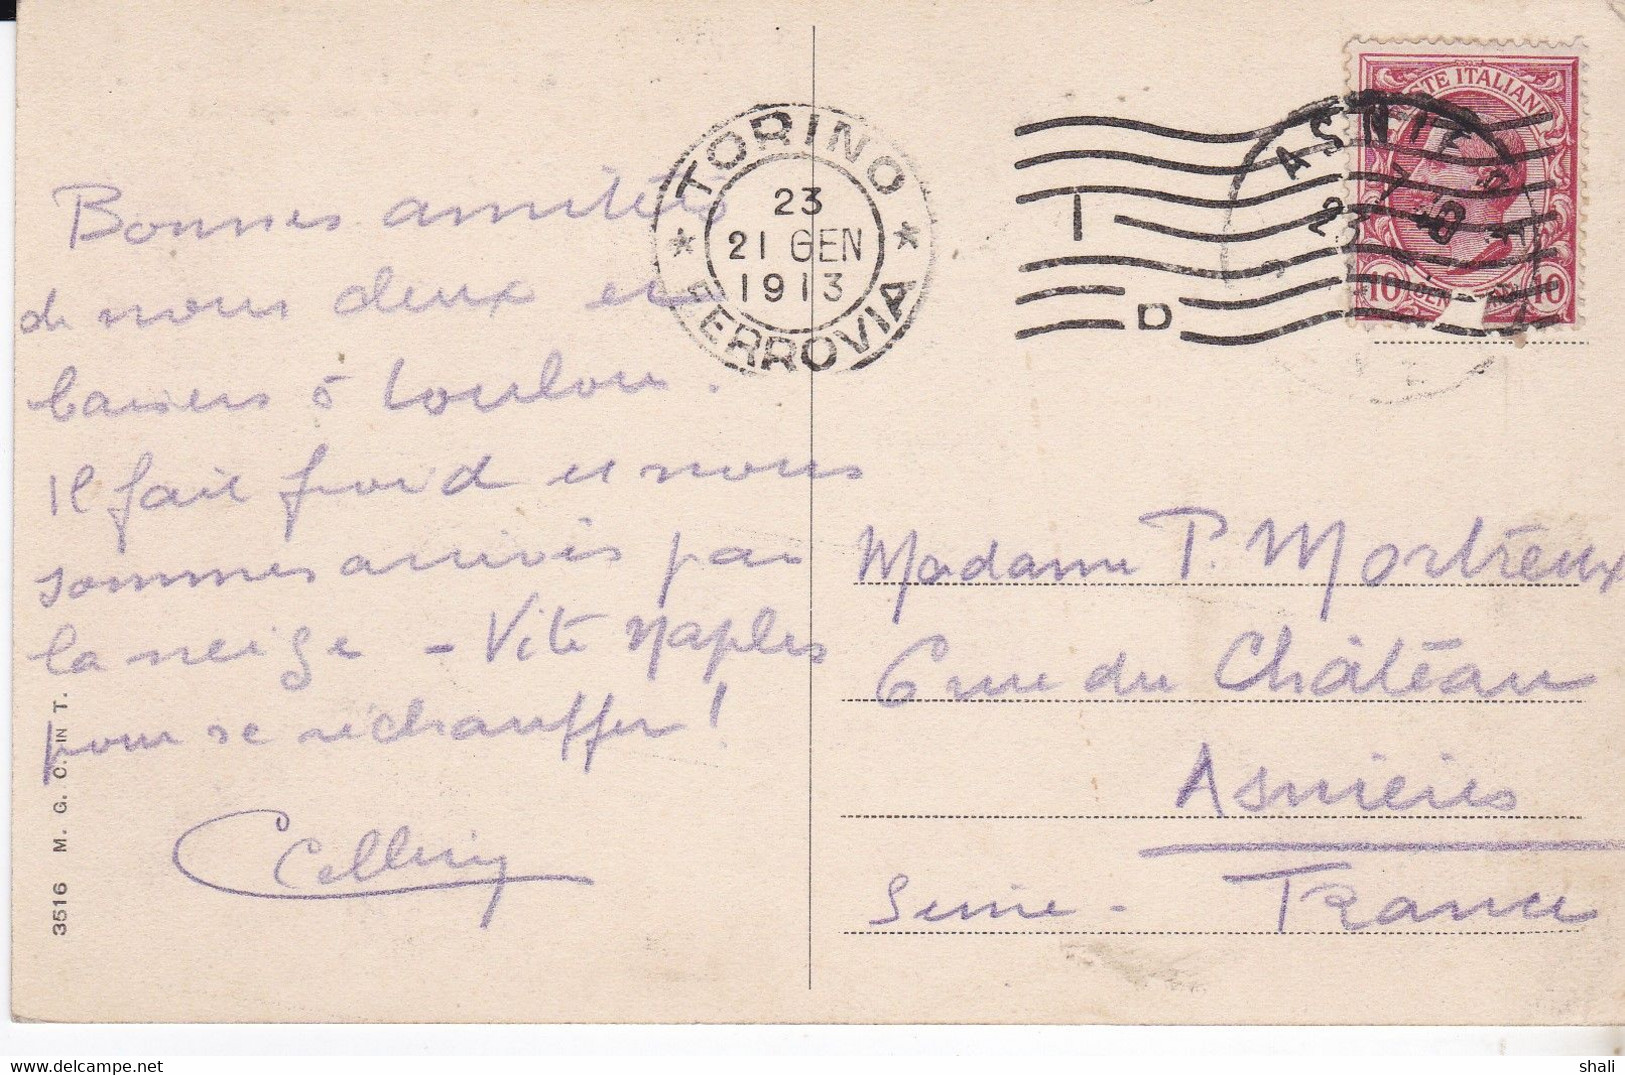 Bonnes amitiés
de nous deux et
baisers à Loulou.
Il fait froid et nous
sommes arrivés par
la neige - Vite Naples
pour se réchauffer!
3516 M. G. C. IN T.
TORINO
23
21 GEN
1913
* FERROVIA *
POSTE ITALIANE
10 CEN 10
ASNIERES
Madame P. Mortreux
6 rue du Château
Asnières
Seine - France
shali